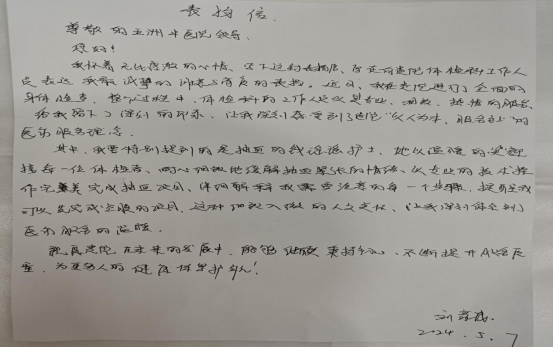 表扬信
尊敬的五洲中医院领导：
您好！
我怀着无比感激的心情，写下这封表扬信，旨在向贵院体检科工作人
员表达我最诚挚的谢意与高度的表扬。近日，我在贵院进行了全面的
身体检查，整个过程中，体检科的工作人员以其专业、细致、热情的服务，
给我留下了深刻的印象，让我深刻感受到了贵院“以人为本，服务至上”的
医疗服务理念。
其中，我要特别提到的是抽血的护士，她以温暖的笑容迎
接每一位体检者，耐心细致地缓解抽血紧张的情绪，以专业的技术操
作完美完成抽血项目，详细解释我需要注意的每一个步骤，提醒我
可以先完成空腹的项目，这种细致入微的人文关怀，让我深刻体会到了
医疗服务的温暖。
祝愿贵院在未来的发展中，能够继续秉持初心，不断提升服务质
量，为更多人的健康保驾护航！
2024.5.7